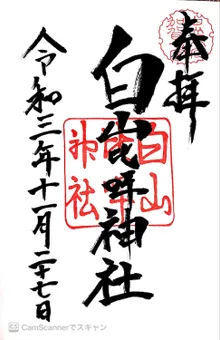 奉拝
白山比咩神社
白山
神社
令和三年十一月二十七日
CamScannerでスキャン